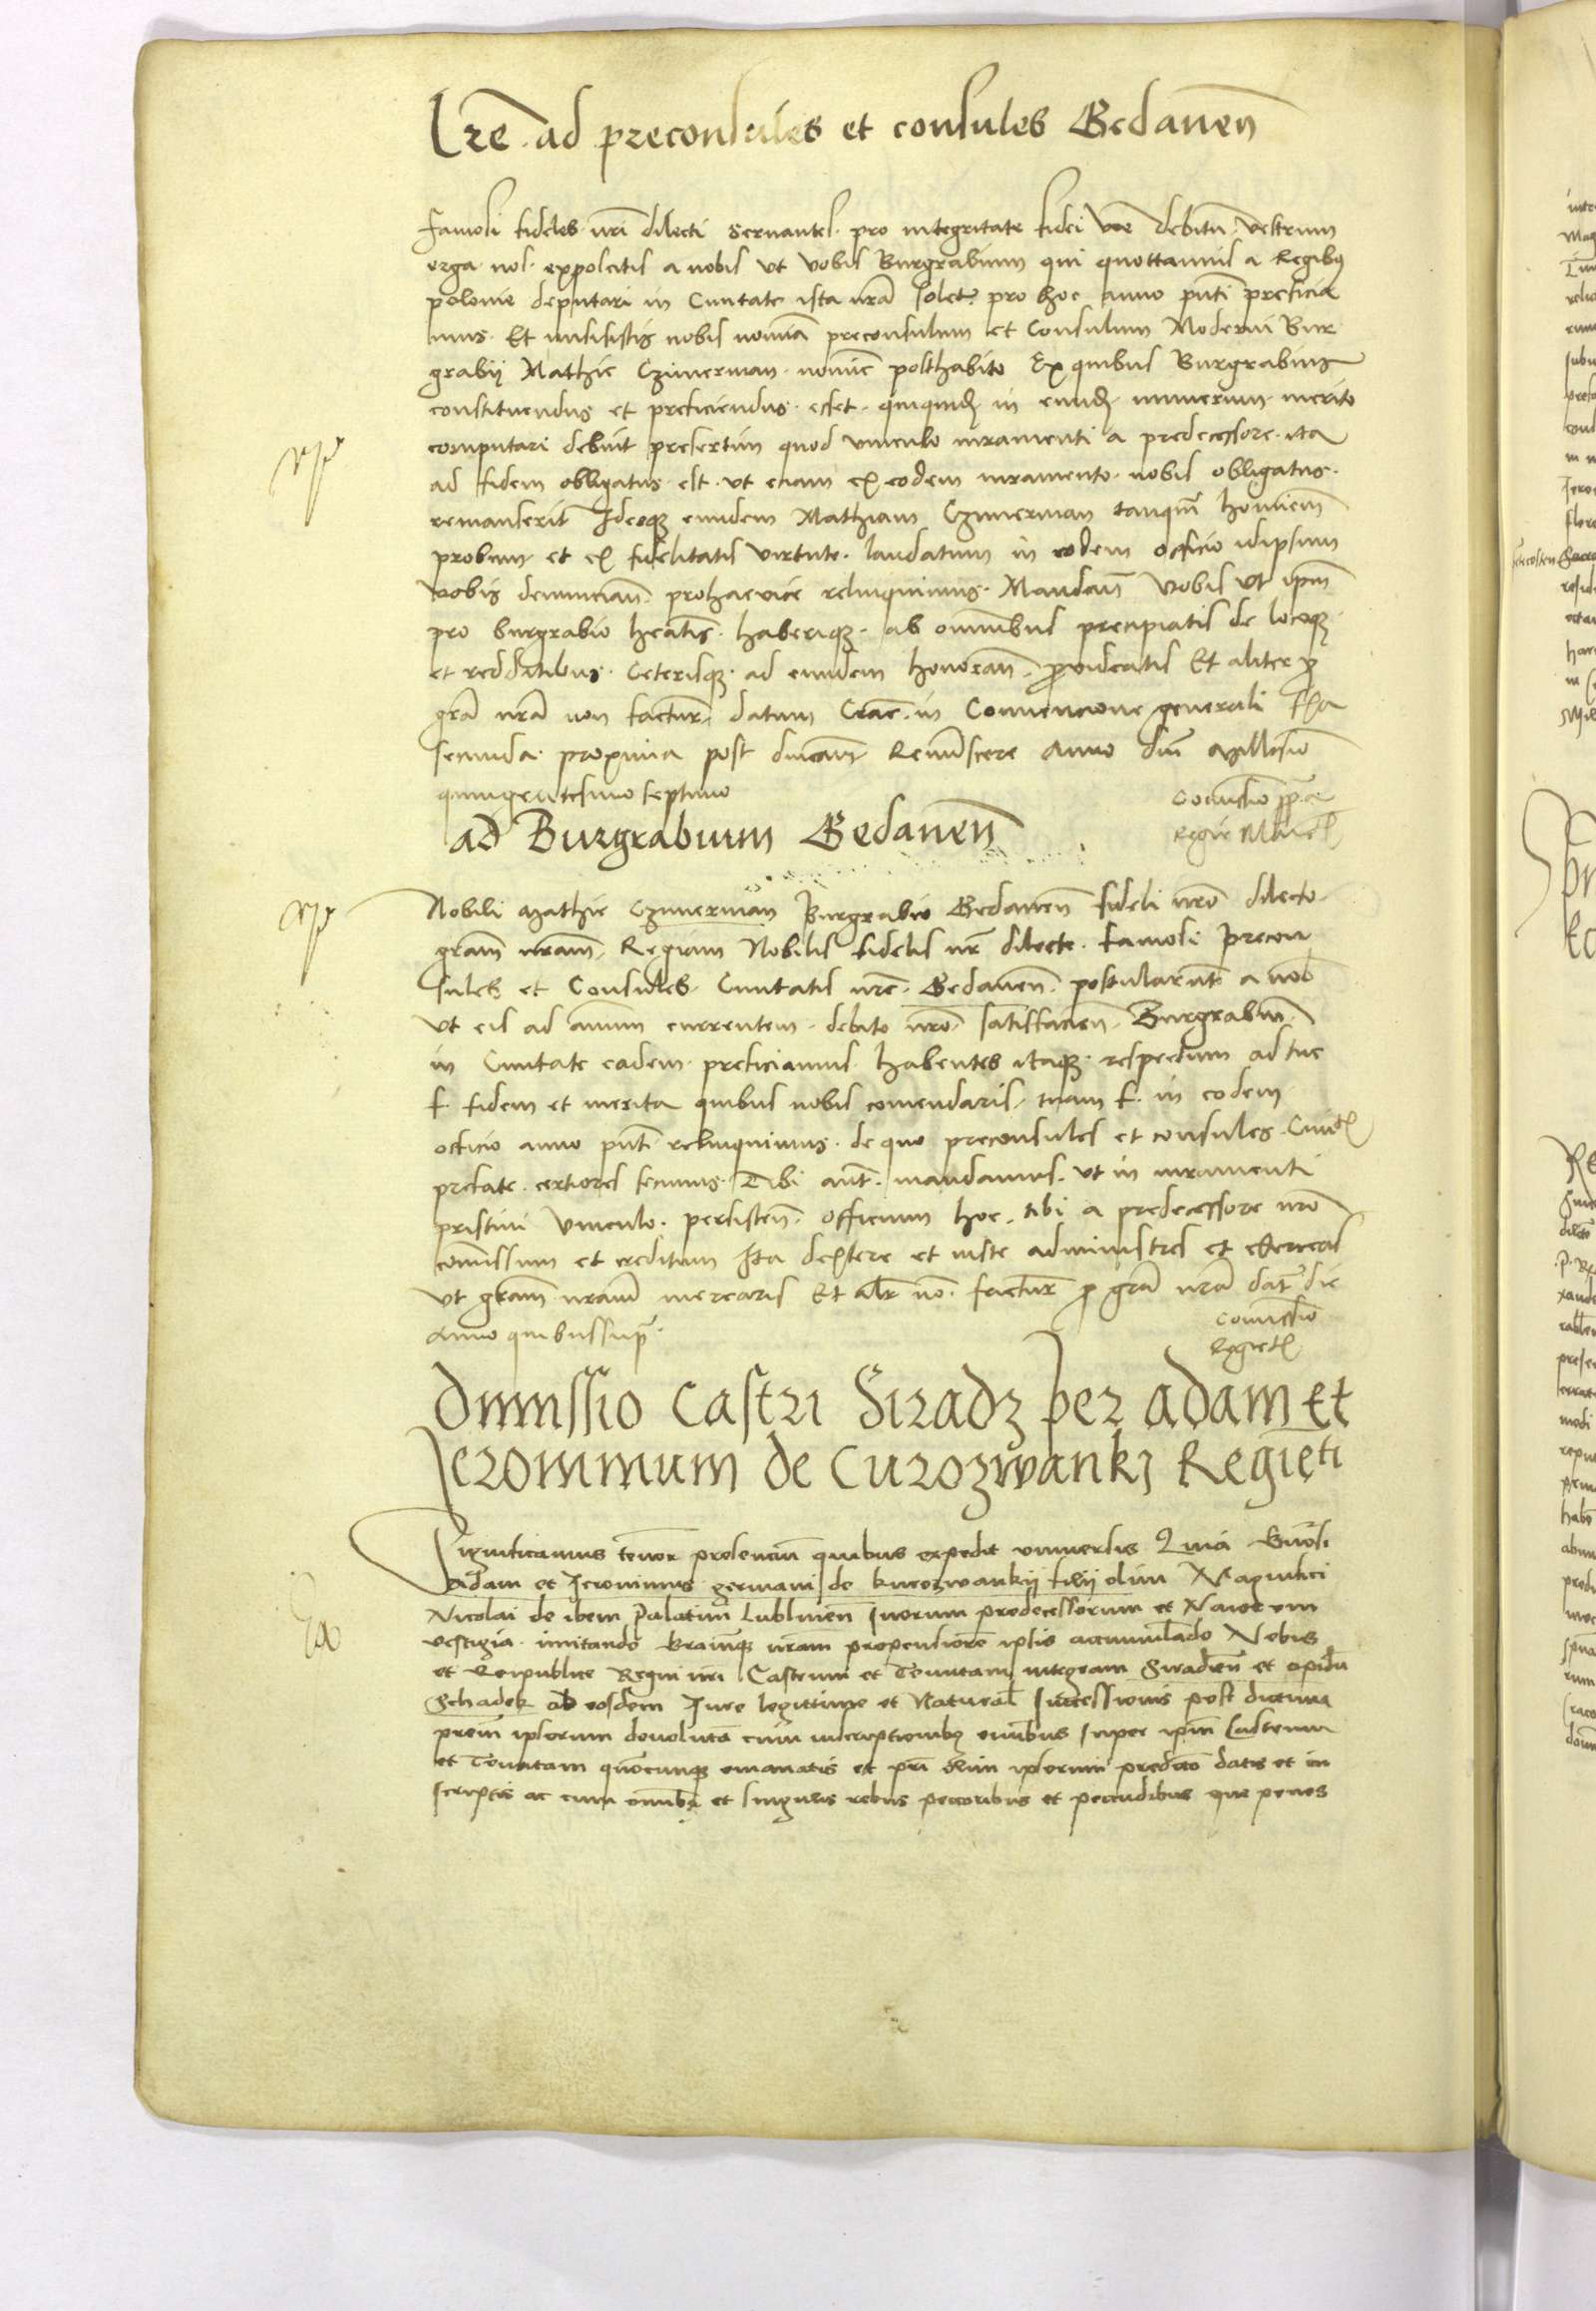 Lre ad preconsules et consules Gedanen
Famosi fideles nri dilecti Servantes pro integritate fidei vre debitu vestrum
erga nos exposcitis a nobis ut vobis Burgrabium qui quottannis a Regibus
polonie deputari in Civitate ista nra solet pro hoc anno pnti preficia
mus Et misistis nobis nomina preconsulum et Consulum Moderni Bur
grabij Mathie Czimerman nomine posthabito Ex quibus Burgrabius
constituendus et preficiendus esset quiquid in eund numerum merito
computari debuit presertim quod vinculo iuramenti a predecessore ita
ad fidem obligatus est ut etiam ex eodem iuramento nobis obligatus
remanserit Ideoque eundem Mathiam Czimerman tanquam hominem
probum et ex fidelitatis virtute laudatum in eodem officio idipsum
vobis denuncian pro hac vice relinquimus Mandan vobis ut ipm
pro burgrabio heatis haberique ab omnibus precipiatis de locoque
et redditibus Ceterisque ad eundem honoran provideatis Et aliter pro
gra nra non factur datum Crac in Convencione generali fria
secunda proxima post dnicam Reminiscere Anno dni Millesimo
quingentesimo septimo
Comissio ppria
Regie Maiest
ad Burgrabium Gedanen
Nobili Mathie Czimerman Burgrabio Gedanen fideli nro dilecto
gram nram Regiam Nobilis fidelis nr dilecte Famosi Precon
sules et Consules Civitatis nre Gedanen postularunt a nob
ut eis ad annum currentem debito nro satisfacien Burgrabium
in Civitate eadem preficiamus habentes itaque respectum ad tue
f. fidem et merita quibus nobis comendaris tuam f. in eodem
officio anno pnt relinquimus de quo preconsules et consules Civit
prefate certiores fecimus Tibi aut mandamus ut in iuramenti
pristini vinculo persisten officium hoc tibi a predecessore nro
comissum et creditum Ita dextere et iuste administres et exerceas
ut gram nram merearis Et alr no factur pro gra nra dat die
Anno quibus supra
Comissio
Regiet
Dimissio Castri Siradz per adam Et
Jeronimum de Curozwanki Regieti
Significamus tenor presencium quibus expedit universis Quia Gnosi
Adam et Jeronimus germani de kurozwankij filij olim Magnifici
Nicolai de ibem Palatini Lublinien suorum predecessorum et Maiorum
vestigia imitando Gramque nram propensiore ipsis accumulando Nobis
et Reipublice Regni nri Castrum et Tenutam integram Siradien et opidu
Schadek ab eosdem Jure legittime et Natural successionis post dictum
prem ipsorum devoluta cum inscriptionibus omibus super ipm Castrum
et Tenutam quocunque emanatis et pri olim ipsorum predicto datis et in
scriptis ac cum omibus et singulis rebus peccoribus et peccudibus que penes